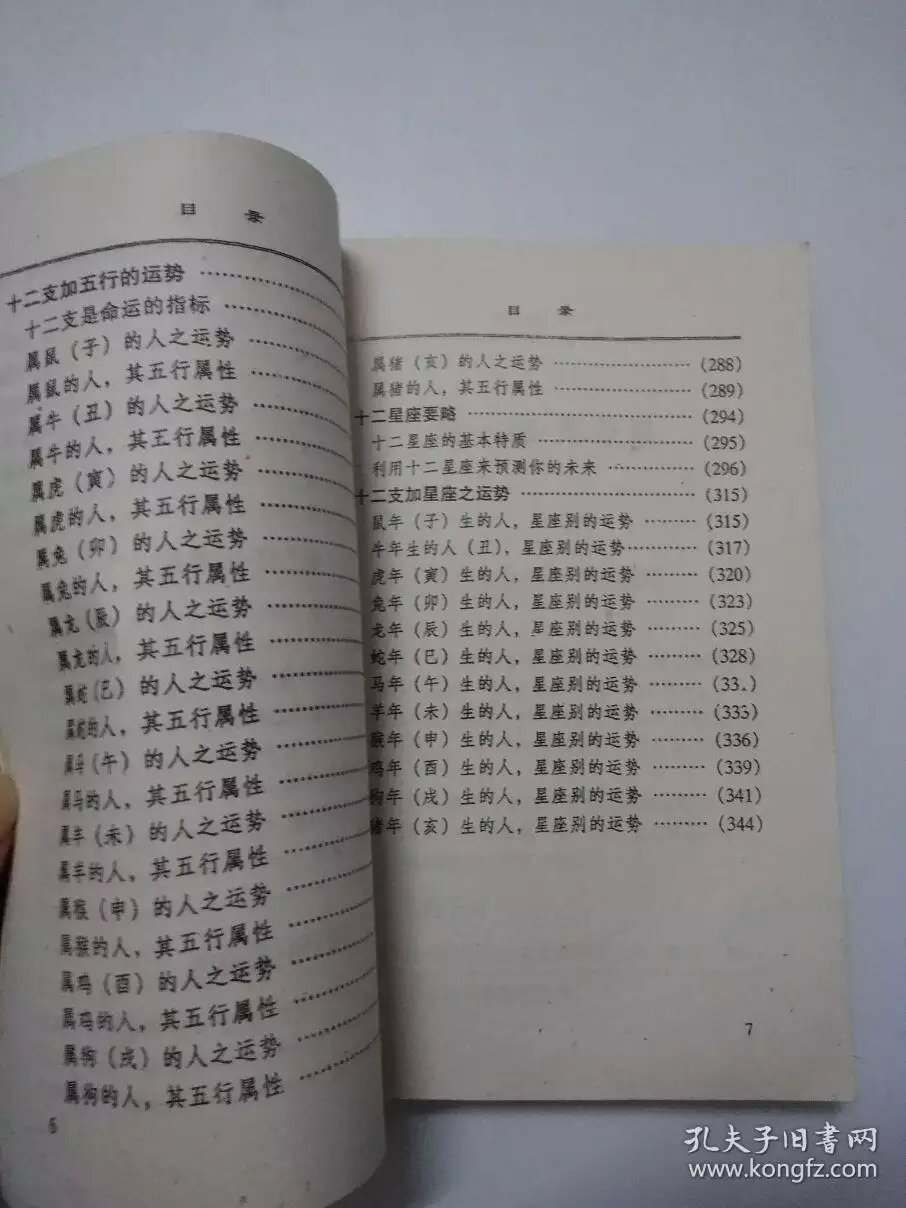 目 录
十二支加五行的运势 ……………
十二支是命运的指标 ……………
属鼠（子）的人之运势 ……………
属鼠的人，其五行属性 ……………
属牛（丑）的人之运势 ……………
属牛的人，其五行属性 ……………
属虎（寅）的人之运势 ……………
属虎的人，其五行属性 ……………
属兔（卯）的人之运势 ……………
属兔的人，其五行属性 ……………
属龙（辰）的人之运势 ……………
属龙的人，其五行属性 ……………
属蛇（巳）的人之运势 ……………
属蛇的人，其五行属性 ……………
属马（午）的人之运势 ……………
属马的人，其五行属性 ……………
属羊（未）的人之运势 ……………
属羊的人，其五行属性 ……………
属猴（申）的人之运势 ……………
属猴的人，其五行属性 ……………
属鸡（酉）的人之运势 ……………
属鸡的人，其五行属性 ……………
属狗（戌）的人之运势 ……………
属狗的人，其五行属性 ……………
6
目 录
属猪（亥）的人之运势 ……………（288）
属猪的人，其五行属性 ……………（289）
十二星座要略 ……………（294）
十二星座的基本特质 ……………（295）
利用十二星座来预测你的未来 ………（296）
十二支加星座之运势 ……………（315）
鼠年（子）生的人，星座别的运势 ………（315）
牛年生的人（丑），星座别的运势………（317）
虎年（寅）生的人，星座别的运势 ………（320）
兔年（卯）生的人，星座别的运势 ………（323）
龙年（辰）生的人，星座别的运势 ………（325）
蛇年（巳）生的人，星座别的运势 ………（328）
马年（午）生的人，星座别的运势 ………（33.）
羊年（未）生的人，星座别的运势 ………（333）
猴年（申）生的人，星座别的运势 ………（336）
鸡年（酉）生的人，星座别的运势 ………（339）
狗年（戌）生的人，星座别的运势 ………（341）
猪年（亥）生的人，星座别的运势 ………（344）
7
孔夫子旧书网
www.kongfz.com